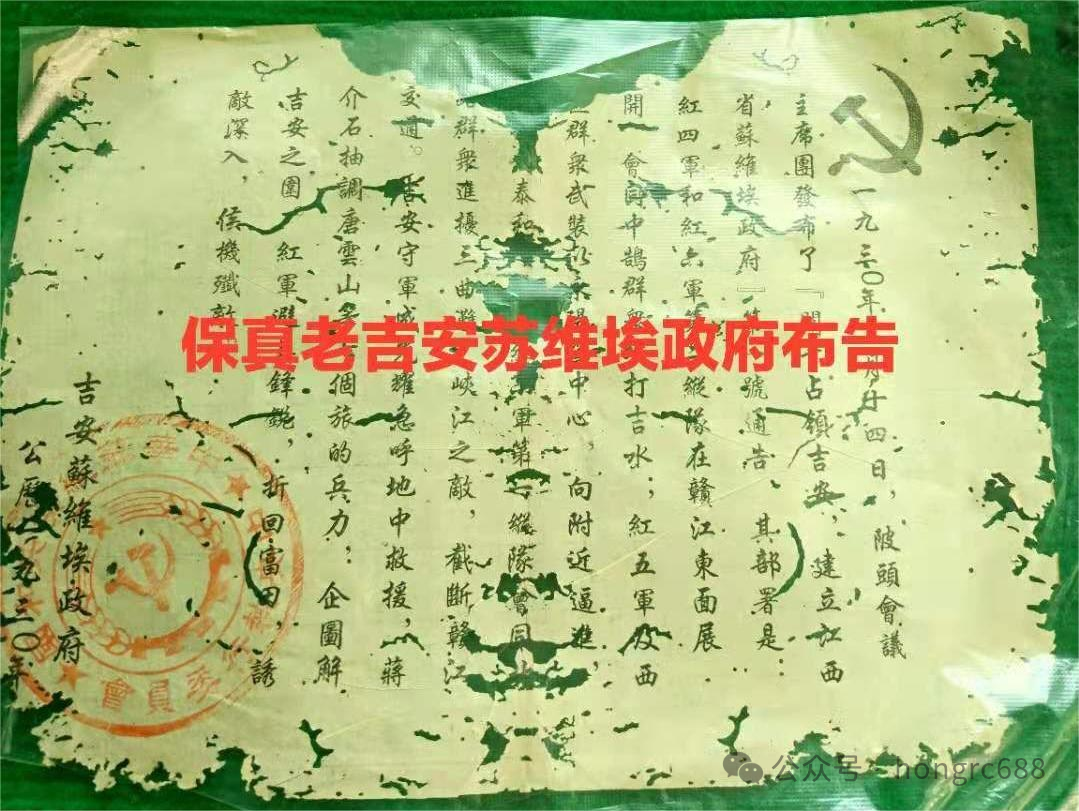 一九三〇年 月廿四日，陂頭會議
主席團發布了『開 占領吉安，建立江西
省蘇維埃政府』第 號通告 其部署是
紅四軍和紅六軍第 縱隊在贛江東面展
開 會同中鵠群衆 打吉水；紅五軍及西
群衆武裝以 陽 中心，向附近逼進，
泰和 軍第一縱隊會同
群衆進擾三曲灘 峽江之敵，截斷贛江
交通。吉安守軍 耀急呼地中救援，蔣
介石抽調唐雲山 個旅的兵力，企圖解
吉安之圍 紅軍避 鋒銳，折回富田，誘
敵深入，侯機殲敵
吉安蘇維埃政府
公曆一九三〇年
委員會
保真老吉安苏维埃政府布告
公众号 · hongrc688